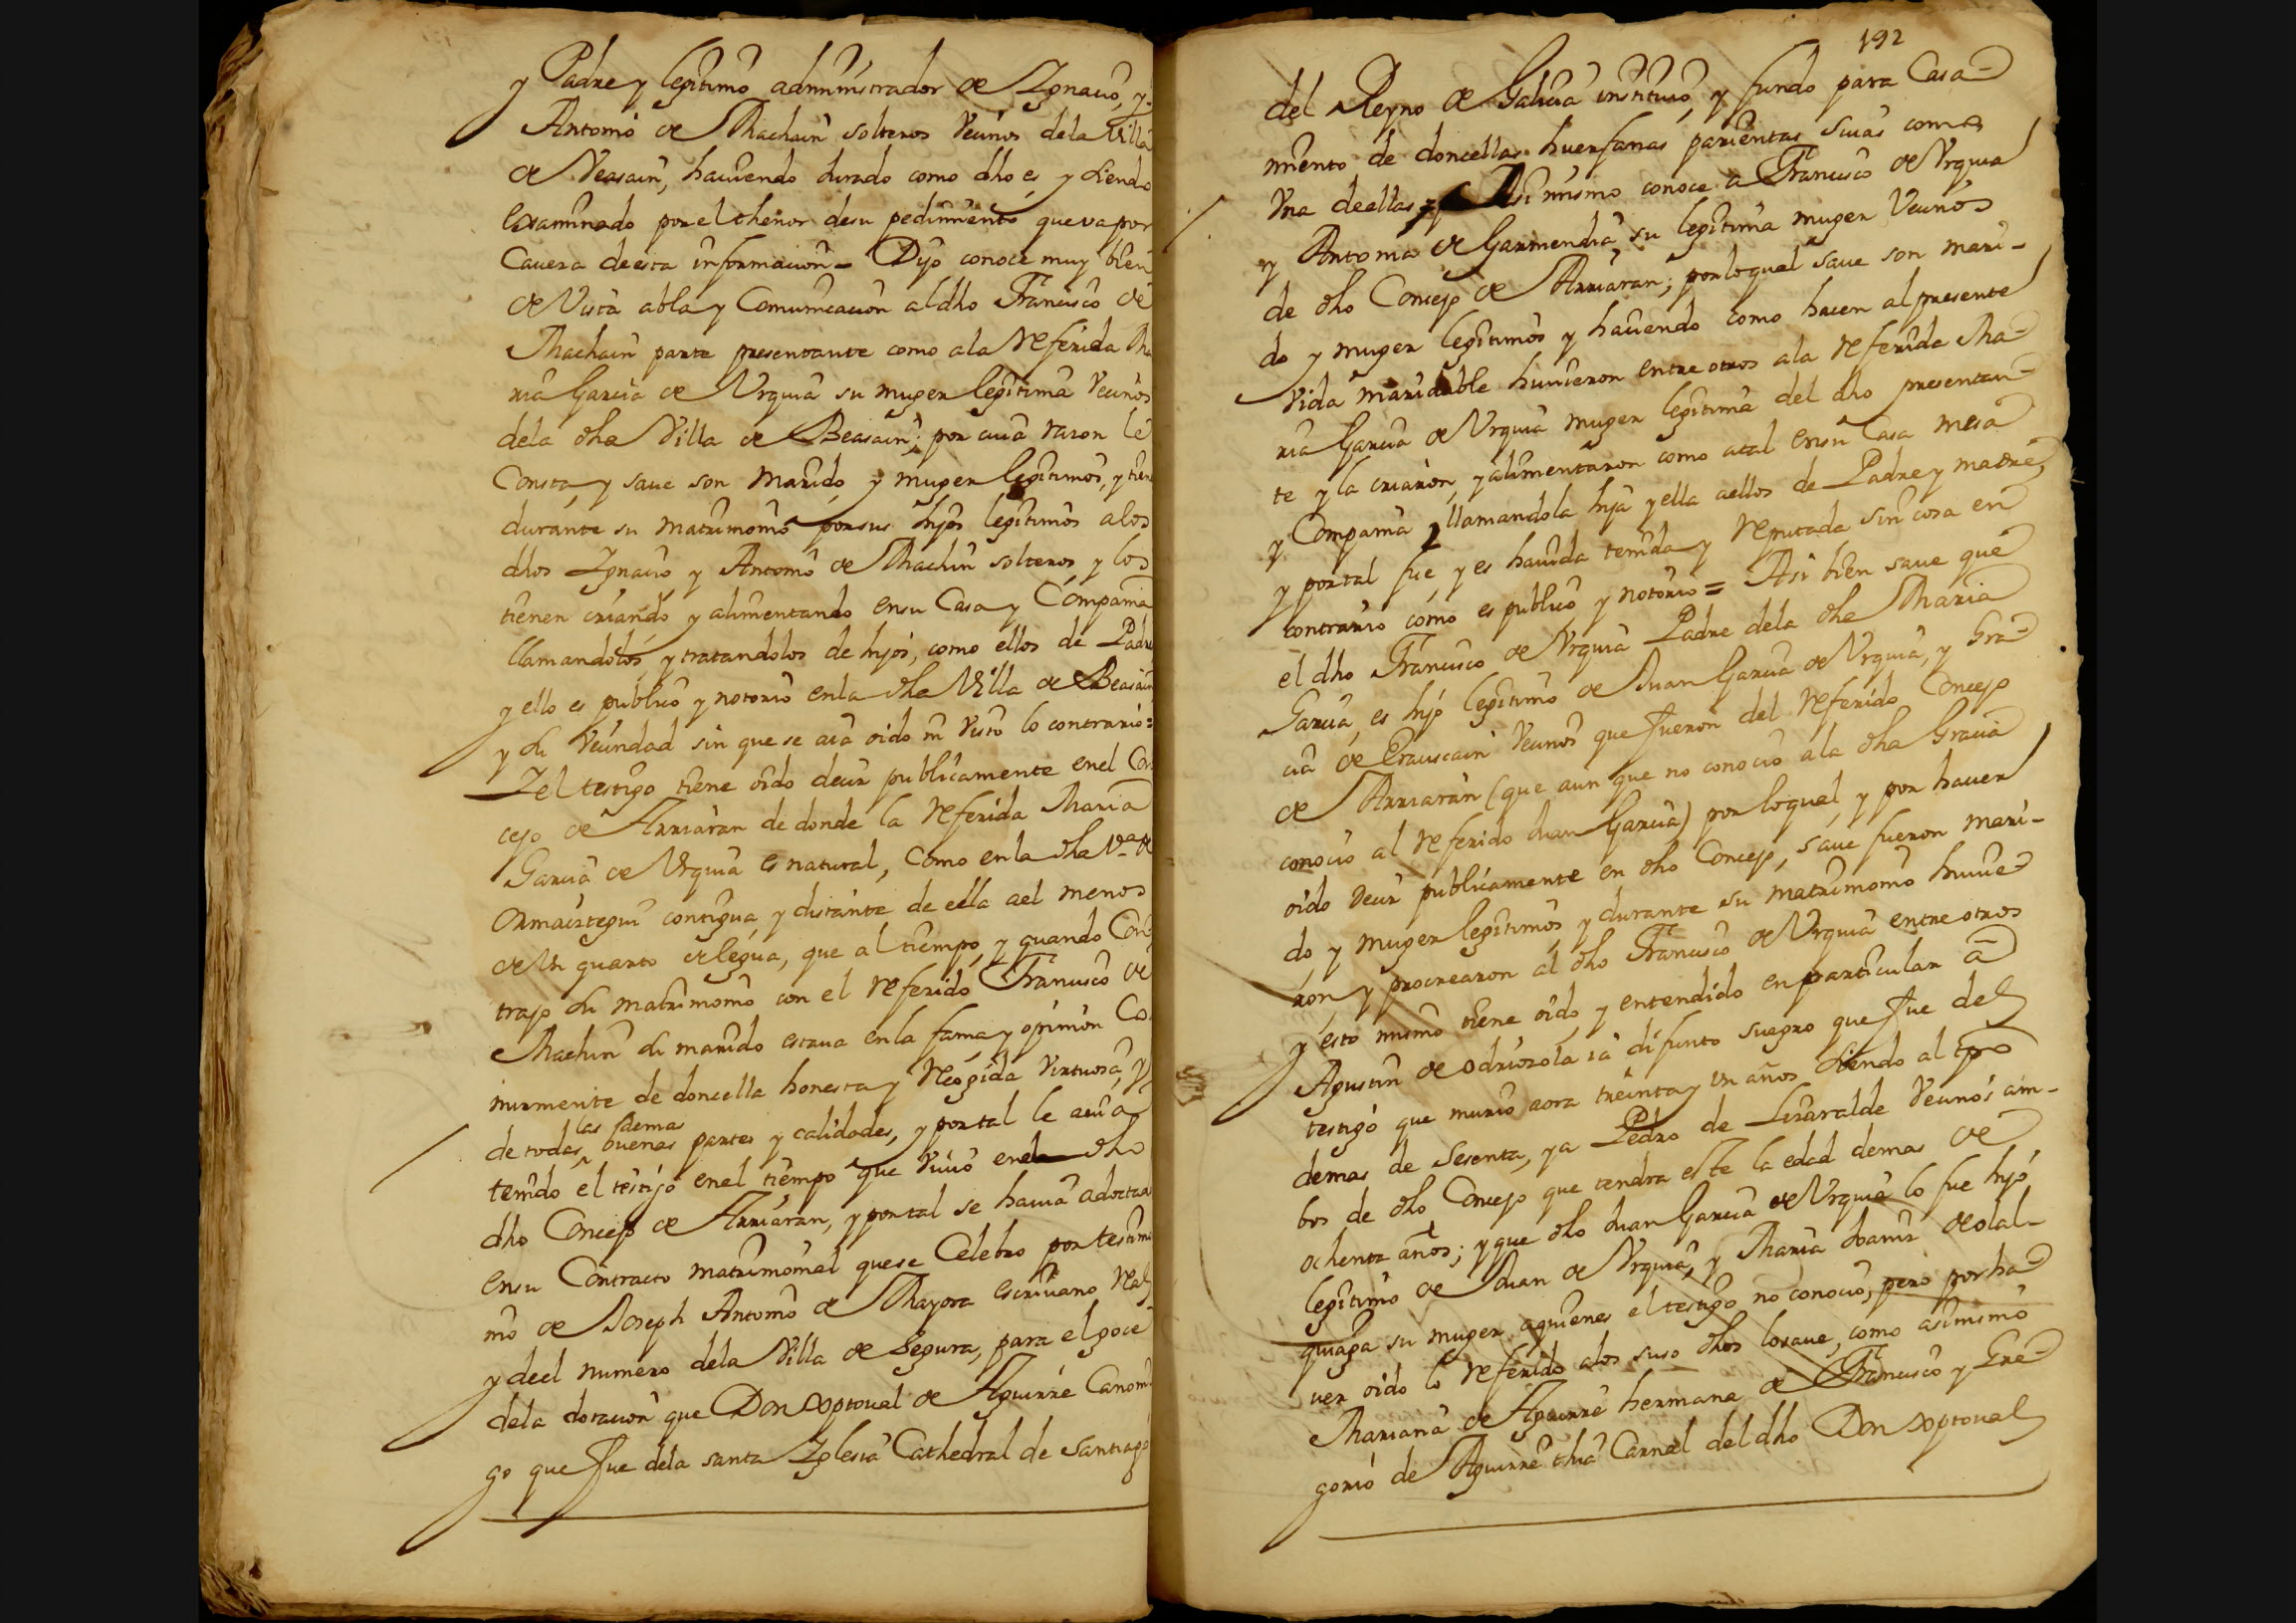 y Padre y legitimo administrador de Ygnacio, y
Antonio de Machain solteros vecinos dela Villa
de Veasain, haviendo Jurado como dho es, y siendo
examinado por el thenor desu pedimiento que va por
Cavera de esta informacion = Dijo conoce muy bien
de Vista abla y Comunicacion al dho Francisco de
Machain parte presentante como ala referida Ma
ria Garcia de Vrquia su muger legitima Vecinos
dela dha Villa de Beasain; por cuia raron le
Consta, y save son marido y muger legitimos, y tien
durante su matrimonio por sus hijos legitimos alos
dhos Ygnacio y Antonio de Machin solteros y los
tienen criando y alimentando en su Casa y Compania
llamandolos y tratandolos de hijos, como ellos de Padre
y ello es publico y notorio en la dha Villa de Beasain
y su Vecindad sin que se aia oido ni visto lo contrario =
Y el testigo tiene oido decir publicamente en el Con
cejo de Arriaran de donde la referida Maria
Garcia de Vrquia es natural, como en la dha Va de
Ormaiztegui contigua, y distante de ella ael menos
de Vn quarto de legua, que al tiempo, y quando Con
trajo su matrimonio con el referido Francisco de
Machin su marido estava en la fama y opinion Co
munmente de doncella honesta y recogida Virtuosa, y
las demas
de todas buenas partes y calidades, y por tal le avia
tenido el testigo en el tiempo que vivio en el dho
dho Concejo de Arriaran, y por tal se havia adoctad
en su Contracto matrimonial que se Celebro por testimo
nio de Joseph Antonio de Mayora escrivano Real
y deel numero dela Villa de Segura, para el goce
dela dotacion que Don Xptoval de Aguirre Canoni
go que fue dela santa Yglesia Cathedral de Santiago
192
del Reyno de Galicia instituio, y fundo para Casa
miento de doncellas huerfanas parientas suias como
Vna de ellas = Asi mismo conoce a Francisco de Vrquia
y Antonia de Garmendia su legitima muger Vecinos
de dho Concejo de Arriaran; por lo qual save son mari-
do y muger legitimos y haciendo como hacen al presente
Vida maridable huvieron entre otros ala referida Ma
ria Garcia de Vrquia muger legitima del dho presentan
te y la criaron, y alimentaron como atal en su Casa mesa
y Compania llamandola hija y ella aellos de Padre y madre,
y por tal fue, y es havida tenida y reputada sin cosa en
contrario como es publico y notorio = Asi bien save que
el dho Francisco de Vrquia Padre dela dha Maria
Garcia, es hijo legitimo de Juan Garcia de Vrquia, y Gra
cia de Erauscain Vecinos que fueron del referido Concejo
de Arriaran (que aun que no conocio ala dha Gracia
conocio al referido Juan Garcia) por lo qual, y por haver
oido decir publicamente en dho Concejo, save fueron mari-
do y muger legitimos, y durante su matrimonio huvie
ron y procrearon al dho Francisco de Vrquia entre otros
y esto mismo tiene oido, y entendido en particular a
Agustin de Odriozola ia difunto suegro que fue del
testigo que murio aora treinta y Vn años siendo al tpo
demas de sesenta, y a Pedro de Lizaralde Vecinos am-
bos de dho Concejo que tendra este la edad demas de
ochenta años; y que dho Juan Garcia de Vrquia lo fue hijo
legitimo de Juan de Vrquia, y Maria Joaniz de olal-
quiaga su muger, aquienes el testigo no conocio, pero por ha
ver oido lo referido alos suso dhos lo save, como asimismo
Mariana de Aguirre hermana de Francisco y Gre
gorio de Aguirre thia Carnal del dho Don Xptoval